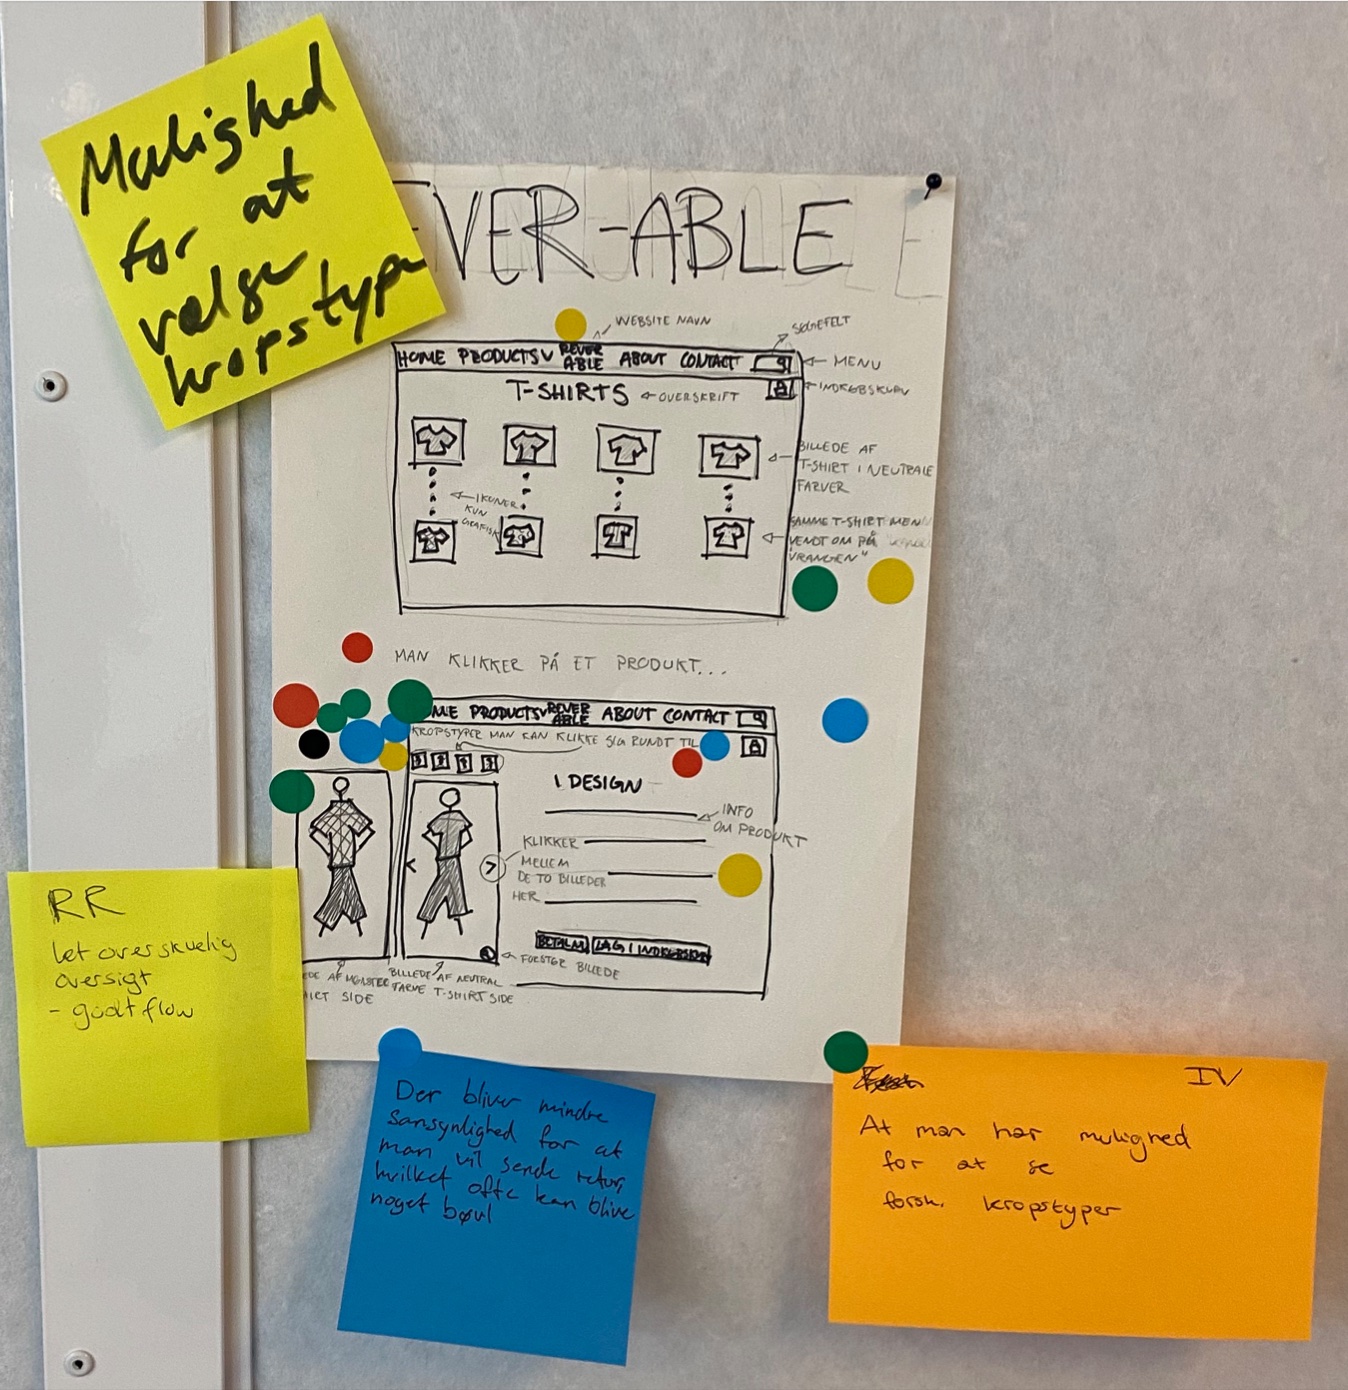 Mulighed
for at
vælge
kropstype
EVER-ABLE
WEBSITE NAVN
SØGEFELT
HOME PRODUCTS REVER ABLE ABOUT CONTACT
MENU
INDKØBSKURV
T-SHIRTS
OVERSKRIFT
BILLEDE AF
T-SHIRT I NEUTRALE
FARVER
IKONER
KUN
GRAFISK
SAMME T-SHIRT MEN
VENDT OM PÅ
VRANGEN"
MAN KLIKKER PÅ ET PRODUKT...
OME PRODUCTS REVER ABLE ABOUT CONTACT
KROPSTYPER MAN KAN KLIKKE SIG RUNDT TIL
1 DESIGN
INFO
OM PRODUKT
KLIKKER
MELLEM
DE TO BILLEDER
HER
BETALING LÆG I INDKØBSKURV
FORSTØR BILLEDE
EDE AF MØNSTER
SIDE
BILLEDE AF NEUTRAL
FARVE T-SHIRT SIDE
RR
let overskuelig
oversigt
- godt flow
Der bliver mindre
sansynlighed for at
man vil sende retur,
hvilket ofte kan blive
noget bøvl
IV
At man har mulighed
for at se
forsk. kropstyper